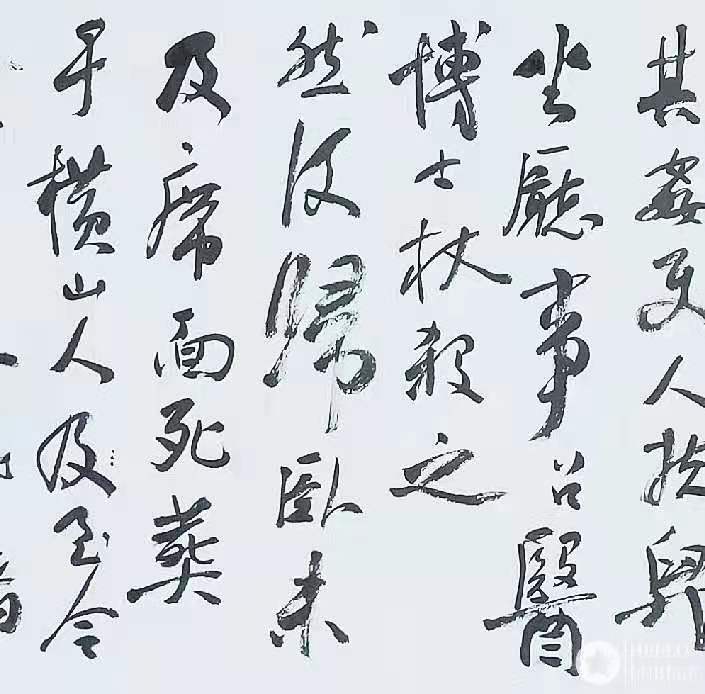 其姦吏人扶舁
坐廳事召醫
博士杖殺之
然後歸臥未
及席面死葬
于橫山人及至今